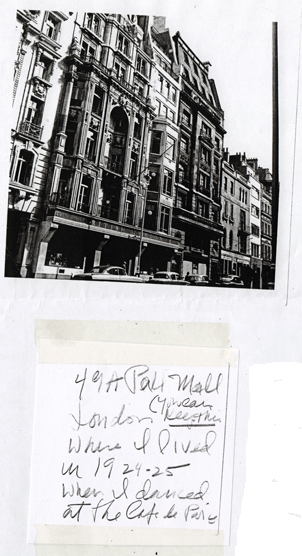 49A Pall Mall
London
Where I lived
in 1924-25
When I danced
at the Cafe de Paris